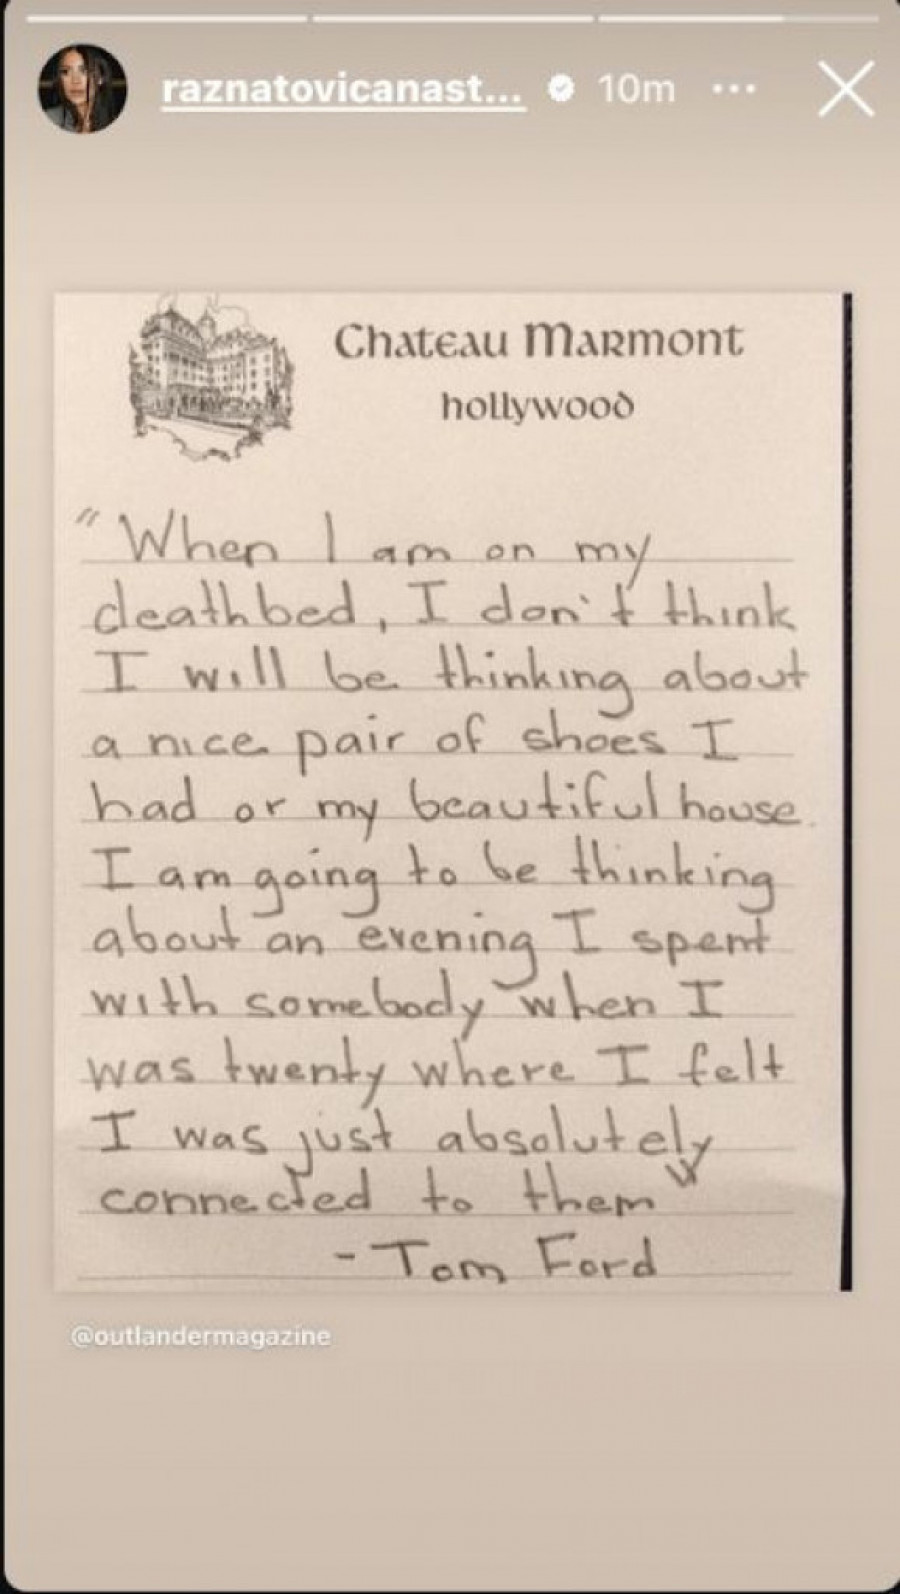 raznatovicanast... 10m ...
Chateau Marmont
hollywood
"When I am on my
deathbed, I don't think
I will be thinking about
a nice pair of shoes I
had or my beautiful house.
I am going to be thinking
about an evening I spent
with somebody when I
was twenty where I felt
I was just absolutely
connected to them"
- Tom Ford
@outlandermagazine